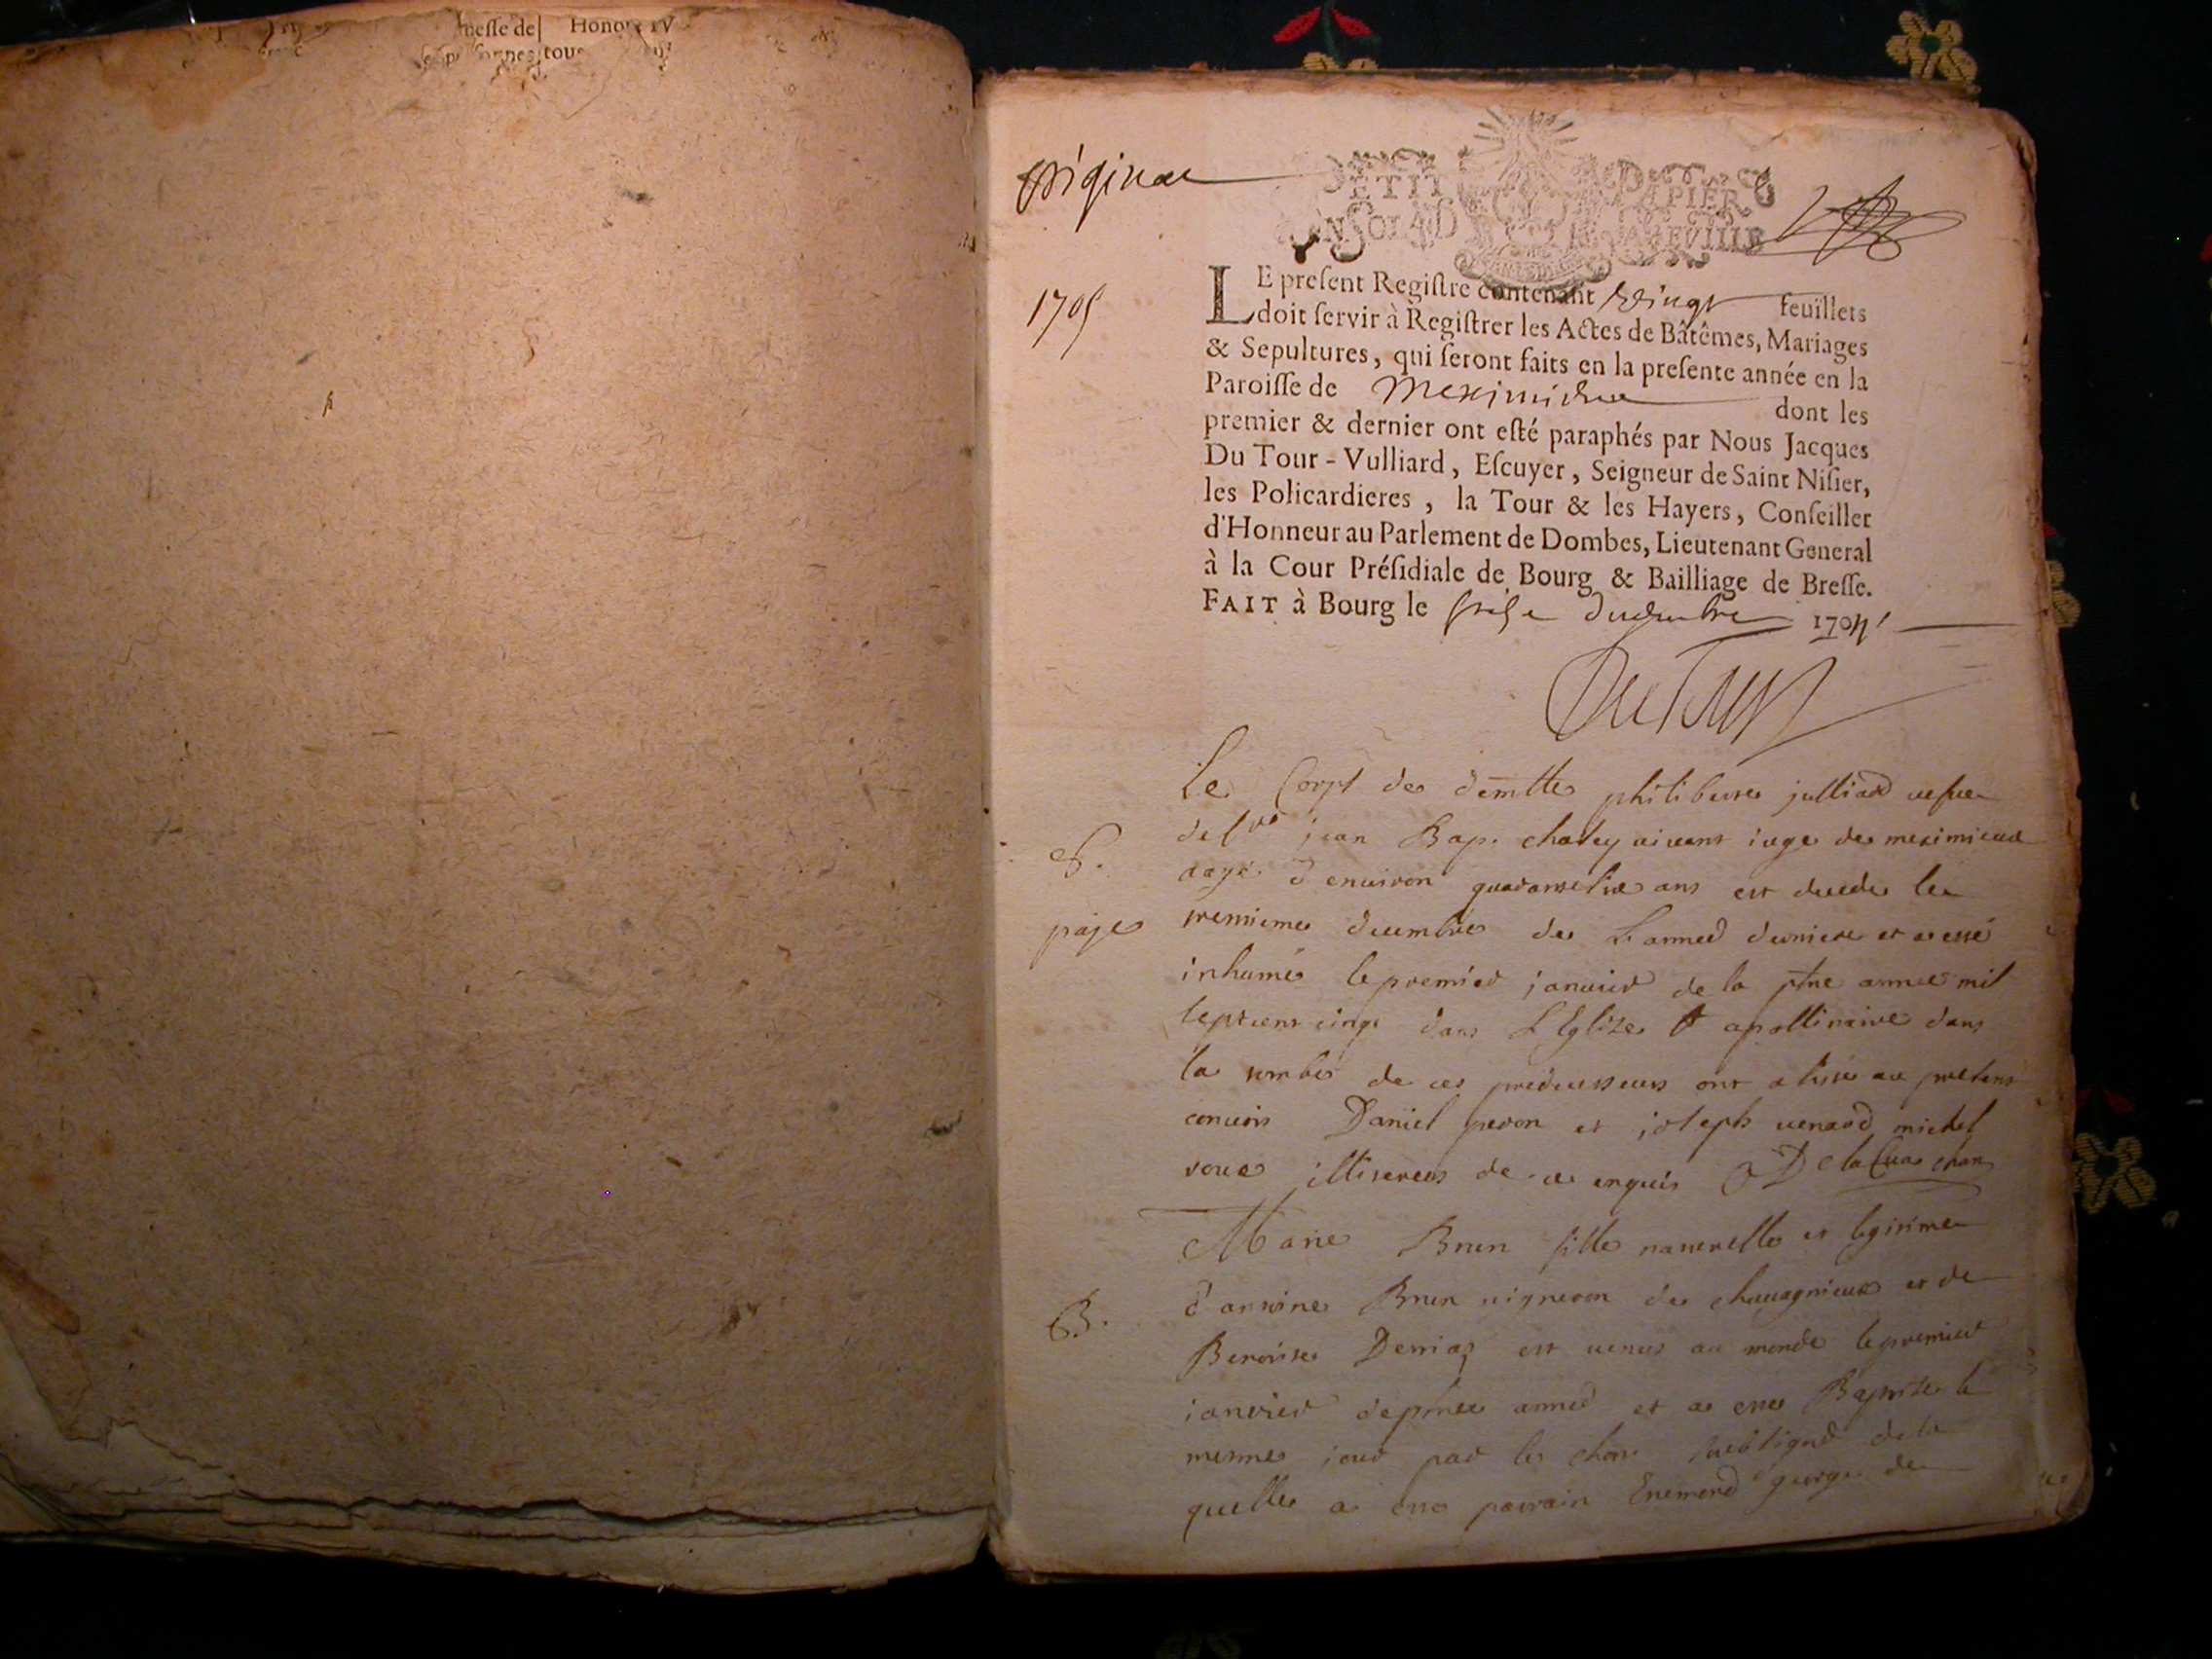 nesse de Honore IV
tous
original
PETIT PAPIER
SOL 4 D
1705
LE present Registre contenant vingt feuïllets
doit servir à Registrer les Actes de Bâtêmes, Mariages
& Sepultures, qui seront faits en la presente année en la
Paroisse de Meximieux dont les
premier & dernier ont esté paraphés par Nous Jacques
Du Tour-Vulliard, Escuyer, Seigneur de Saint Nisier,
les Policardieres, la Tour & les Hayers, Conseiller
d'Honneur au Parlement de Dombes, Lieutenant General
à la Cour Présidiale de Bourg & Bailliage de Bresse.
FAIT à Bourg le decembre 1704
DuTour
Le Corps de demlle philiberte julliard vefve
de jean Bap. chaley vivant iuge de meximieux
S.
aagé d'environ quarante ans est decede le
page
trentieme decembre de L'anneé derniere et a esté
inhumé le premier janvier de la pnte annee mil
sept cent cinq dans L'Eglize St apollinaire dans
la tombe de ces predecesseurs ont assisté au
convois Daniel peron et joseph venard michel
illiteres de ce enquis
Marie Brun fille naturelle et legitime
d'antoine Brun vigneron de chavagnieux et de
B.
Benoite Derriaz est venue au monde le premier
ianvier anneé et a esté Baptizé le
mesme iour par le chan. soubsigné de la
quelle a esté parrain Enemond george de